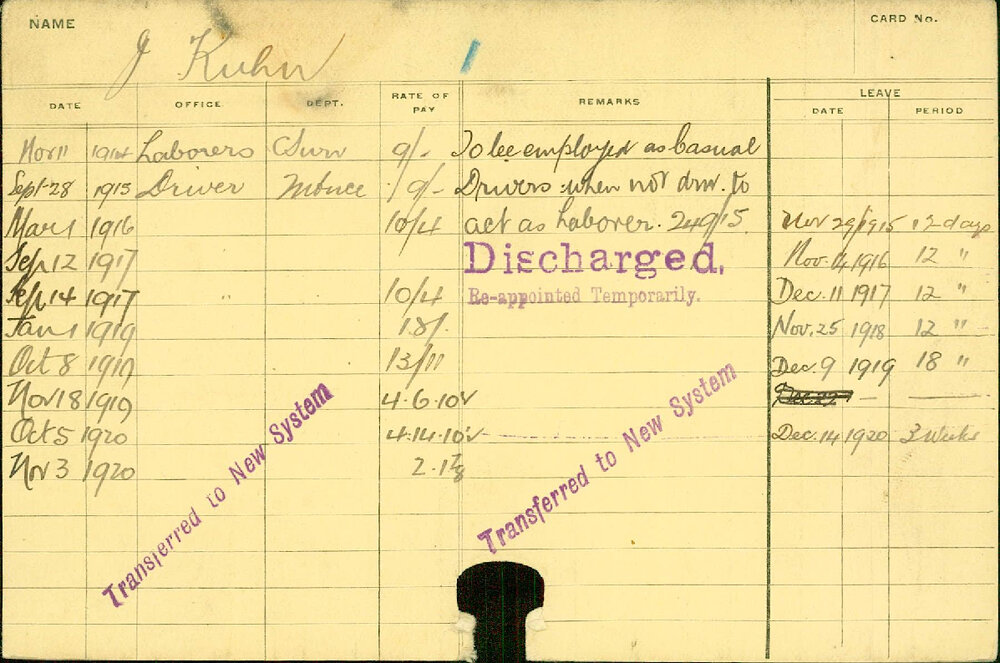 NAME
CARD No.
J Kuhn
DATE OFFICE DEPT. RATE OF PAY REMARKS LEAVE
DATE PERIOD
Nov 11 1914 Laborers 9/- To be employed as Casual
Sept 28 1915 Driver 9/- Drivers when not drvr. to
Mar 1 1916 10/4 act as Laborer. 24/9/15. Nov 29/1915 12 days
Sep 12 1917 Discharged. Nov. 14 1916 12 "
Sep 14 1917 " 10/4 Re-appointed Temporarily. Dec. 11 1917 12 "
Jan 1 1919 Nov. 25 1918 12 "
Oct 8 1919 13/11 Dec. 9 1919 18 "
Nov 18 1919 4.6.10
Oct 5 1920 4.14.10 Dec. 14 1920 3 Weeks
Nov 3 1920
Transferred to New System
Transferred to New System